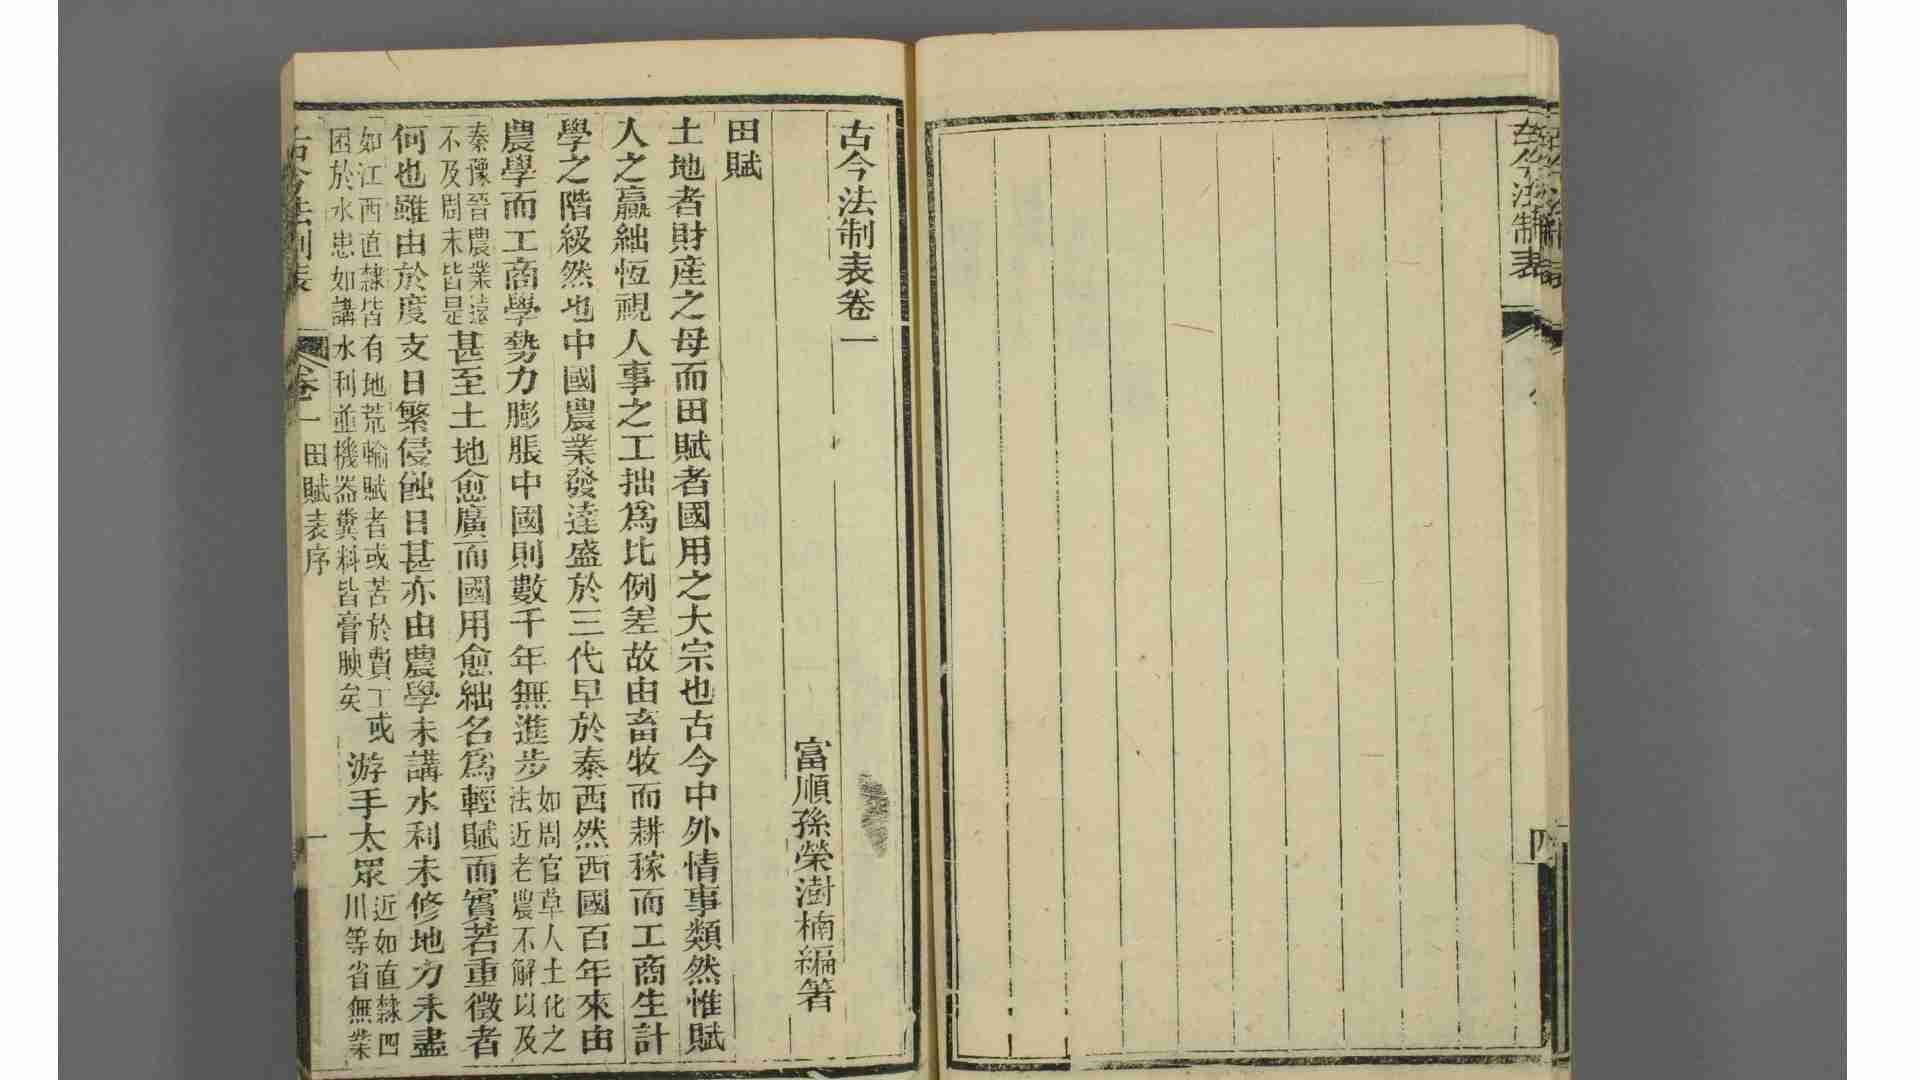 古今法制表
四
古今法制表卷一
富順孫榮澍楠編著
田賦
土地者財産之母而田賦者國用之大宗也古今中外情事類然惟賦
人之贏絀恆視人事之工拙爲比例差故由畜牧而耕稼而工商生計
學之階級然也中國農業發達盛於三代早於泰西然西國百年來由
農學而工商學勢力膨脹中國則數千年無進步如周官草人土化之
法近老農不解以及
秦豫晉農業遠
不及周末皆是甚至土地愈廣而國用愈絀名爲輕賦而實若重徵者
何也雖由於度支日繁侵蝕日甚亦由農學未講水利未修地力未盡
如江西直隸皆有地荒輸賦者或苦於費工或
困於水患如講水利並機器糞料皆膏腴矣游手太眾近如直隸四
川等省無業
古今法制表 卷一 田賦表序 一